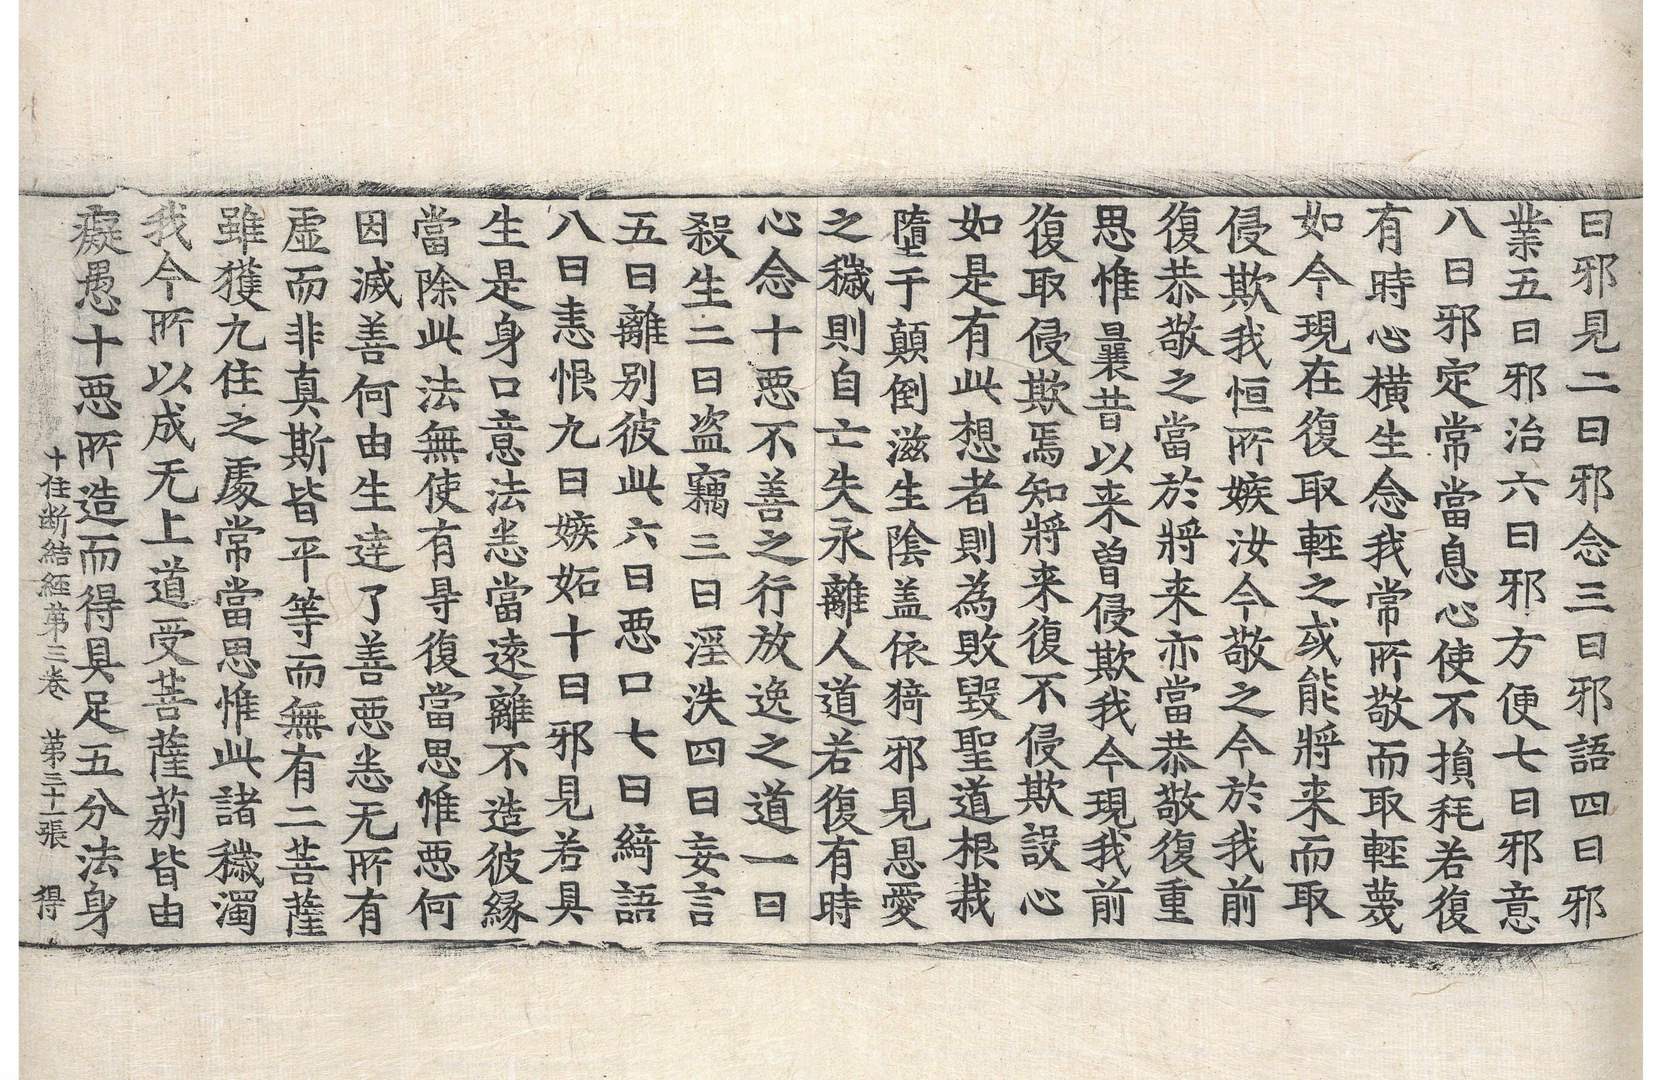 曰邪見二曰邪念三曰邪語四曰邪
業五曰邪治六曰邪方便七曰邪意
八曰邪定常當息心使不損耗若復
有時心橫生念我常所敬而取輕蔑
如今現在復取輕之或能將来而取
侵欺我恒所嫉汝今敬之今於我前
復恭敬之當於將来亦當恭敬復重
思惟曩昔以来曽侵欺我今現我前
復取侵欺焉知將来復不侵欺設心
如是有此想者則為敗毀聖道根栽
墮于顛倒滋生陰盖依猗邪見恩愛
之穢則自亡失永離人道若復有時
心念十惡不善之行放逸之道一曰
殺生二曰盗竊三曰淫泆四曰妄言
五曰離別彼此六曰惡口七曰綺語
八曰恚恨九曰嫉妬十曰邪見若具
生是身口意法悉當遠離不造彼縁
當除此法無使有㝵復當思惟惡何
因滅善何由生達了善惡悉无所有
虛而非真斯皆平等而無有二菩薩
雖獲九住之處常當思惟此諸穢濁
我今所以成无上道受菩薩莂皆由
癡愚十惡所造而得具足五分法身
十住断結經第三卷　第三十一張　得